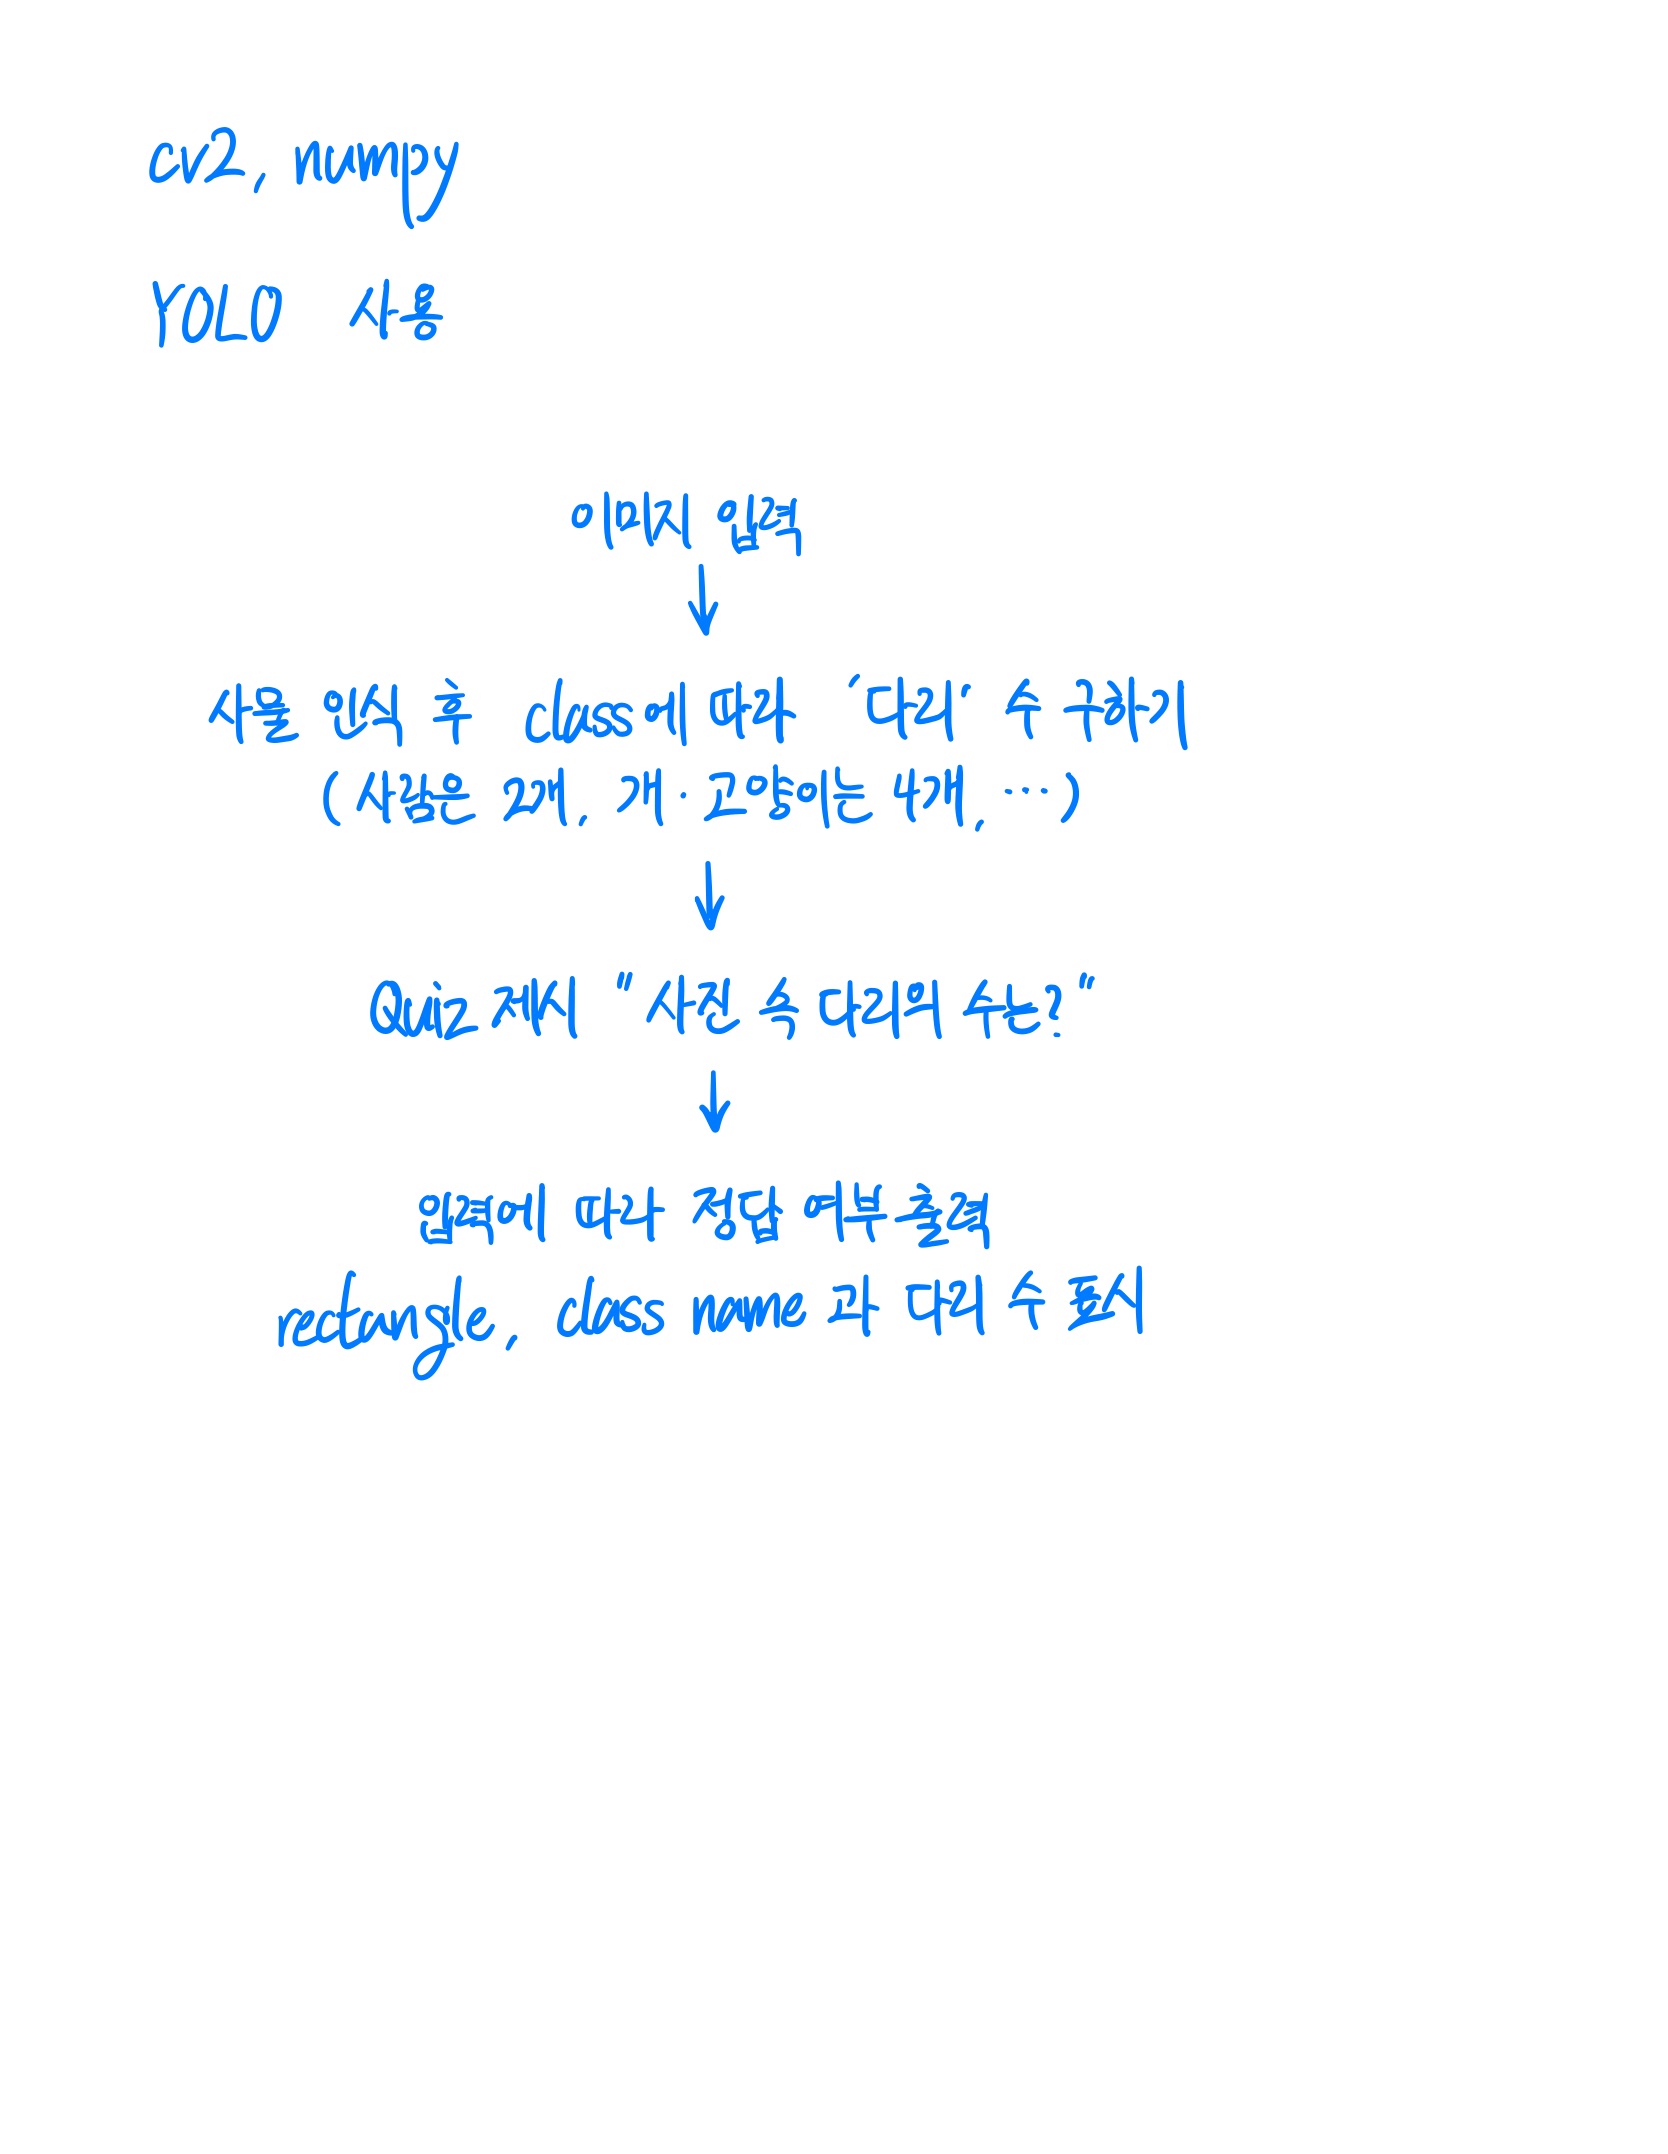 cv2, numpy
YOLO 사용
이미지 입력
↓
사물 인식 후 class에 따라 '다리' 수 구하기
(사람은 2개, 개·고양이는 4개, ...)
↓
Quiz 제시 "사진 속 다리의 수는?"
↓
입력에 따라 정답 여부 출력
rectangle, class name 과 다리 수 표시